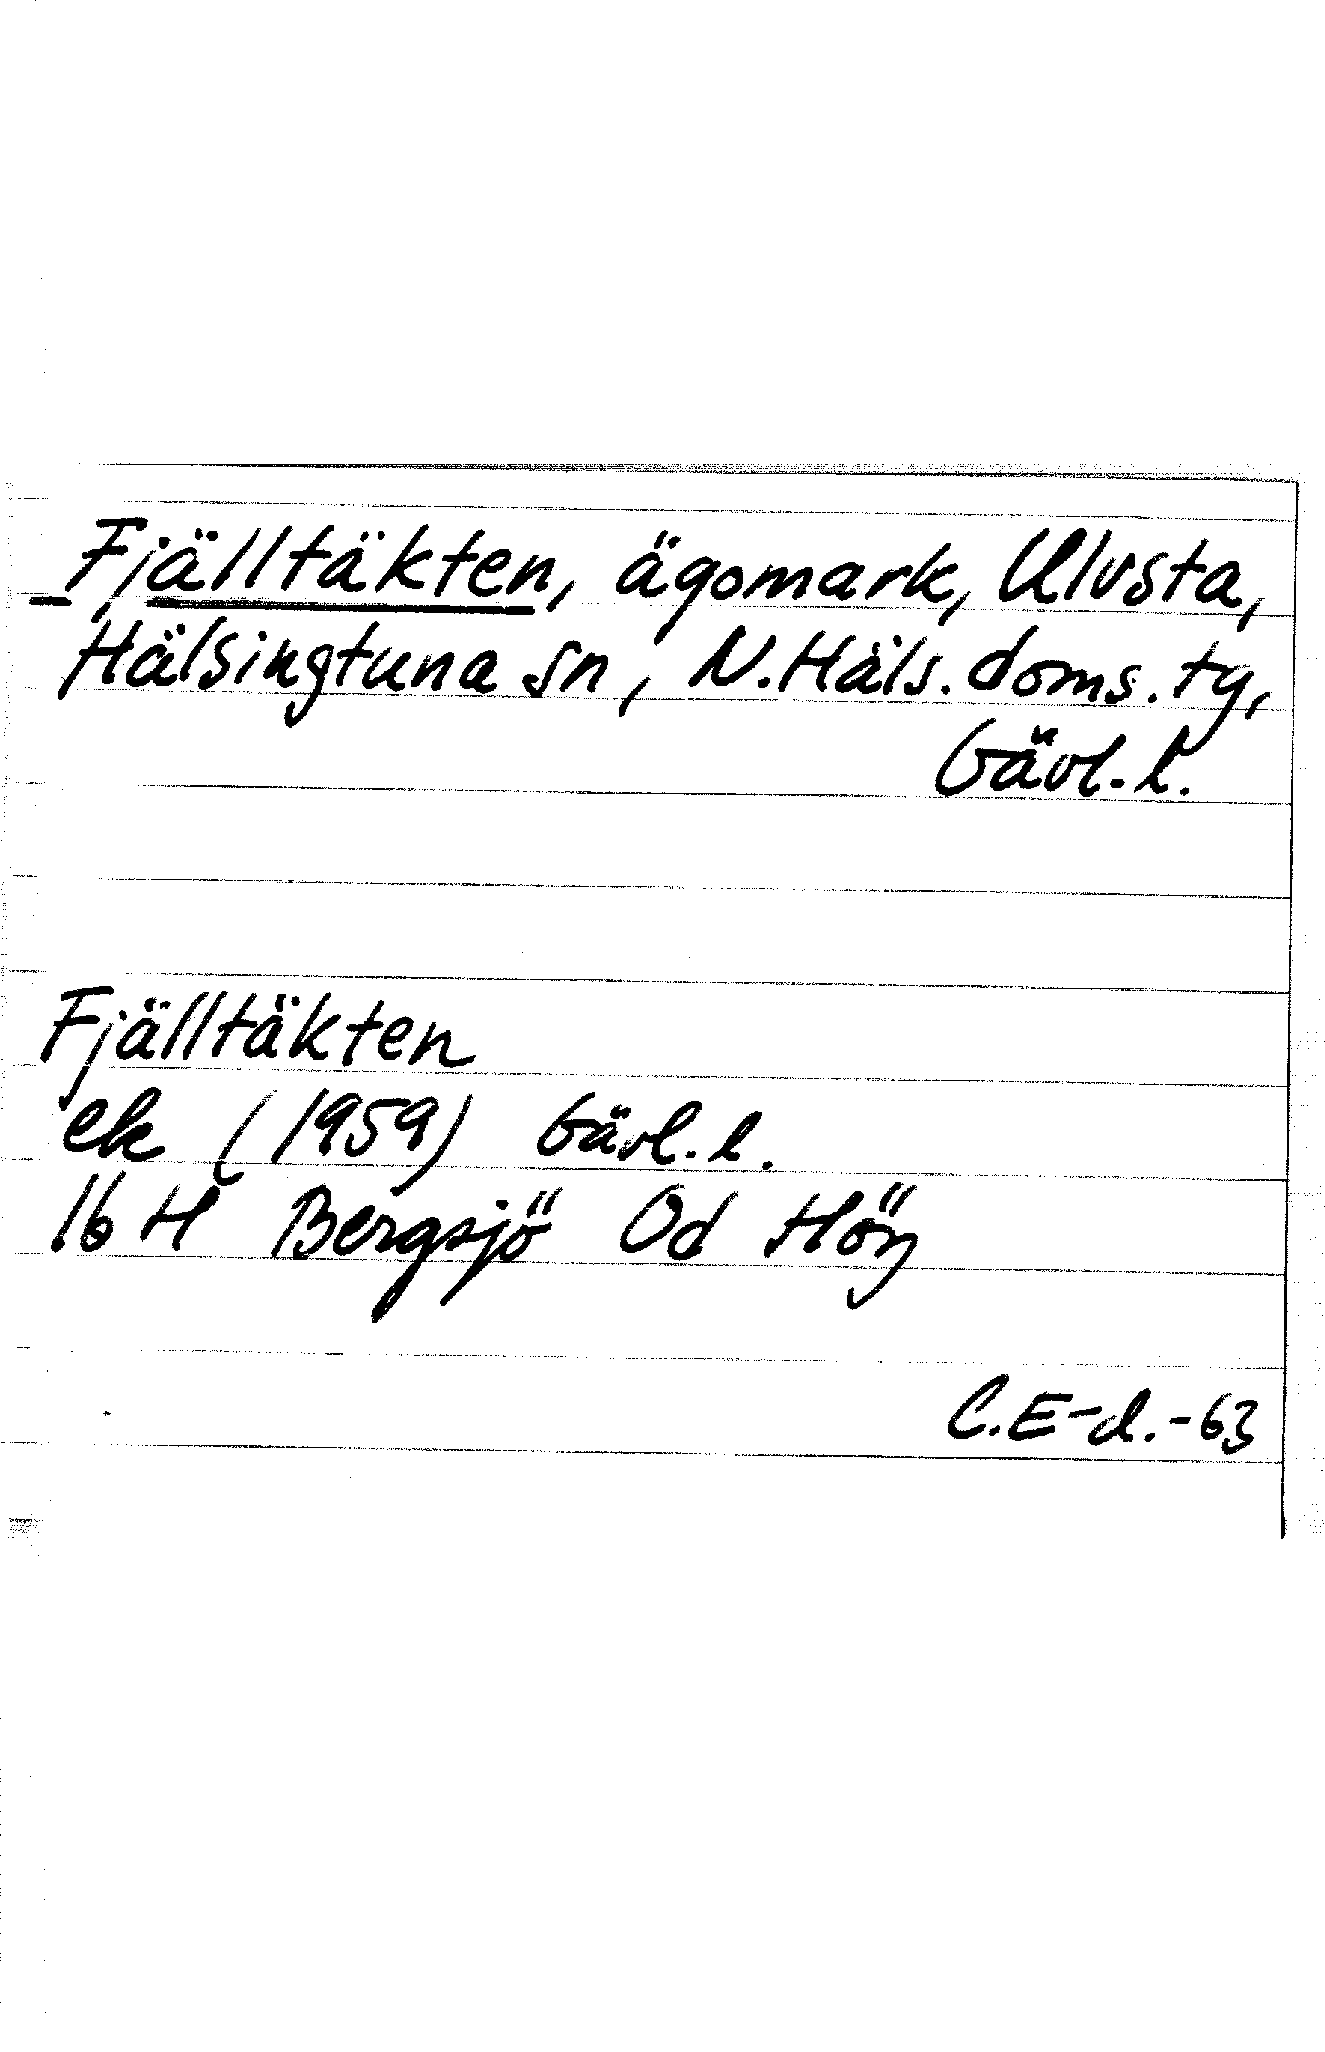 Fjälltäkten, ägomark, Ulvsta,
Hälsingtuna sn, N.Häls.doms.ty,
Gävl.l.
Fjälltäkten
ek (1959) Gävl.l.
16 H Bergsjö Od Höy
C.E-d.-63